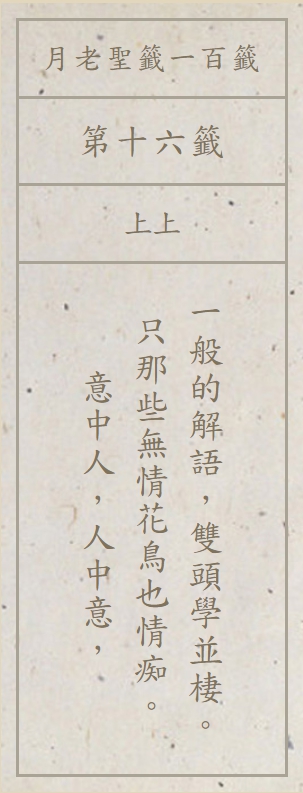 月老聖籤一百籤
第十六籤
上上
意中人，人中意，
只那些無情花鳥也情痴。
一般的解語，雙頭學並棲。